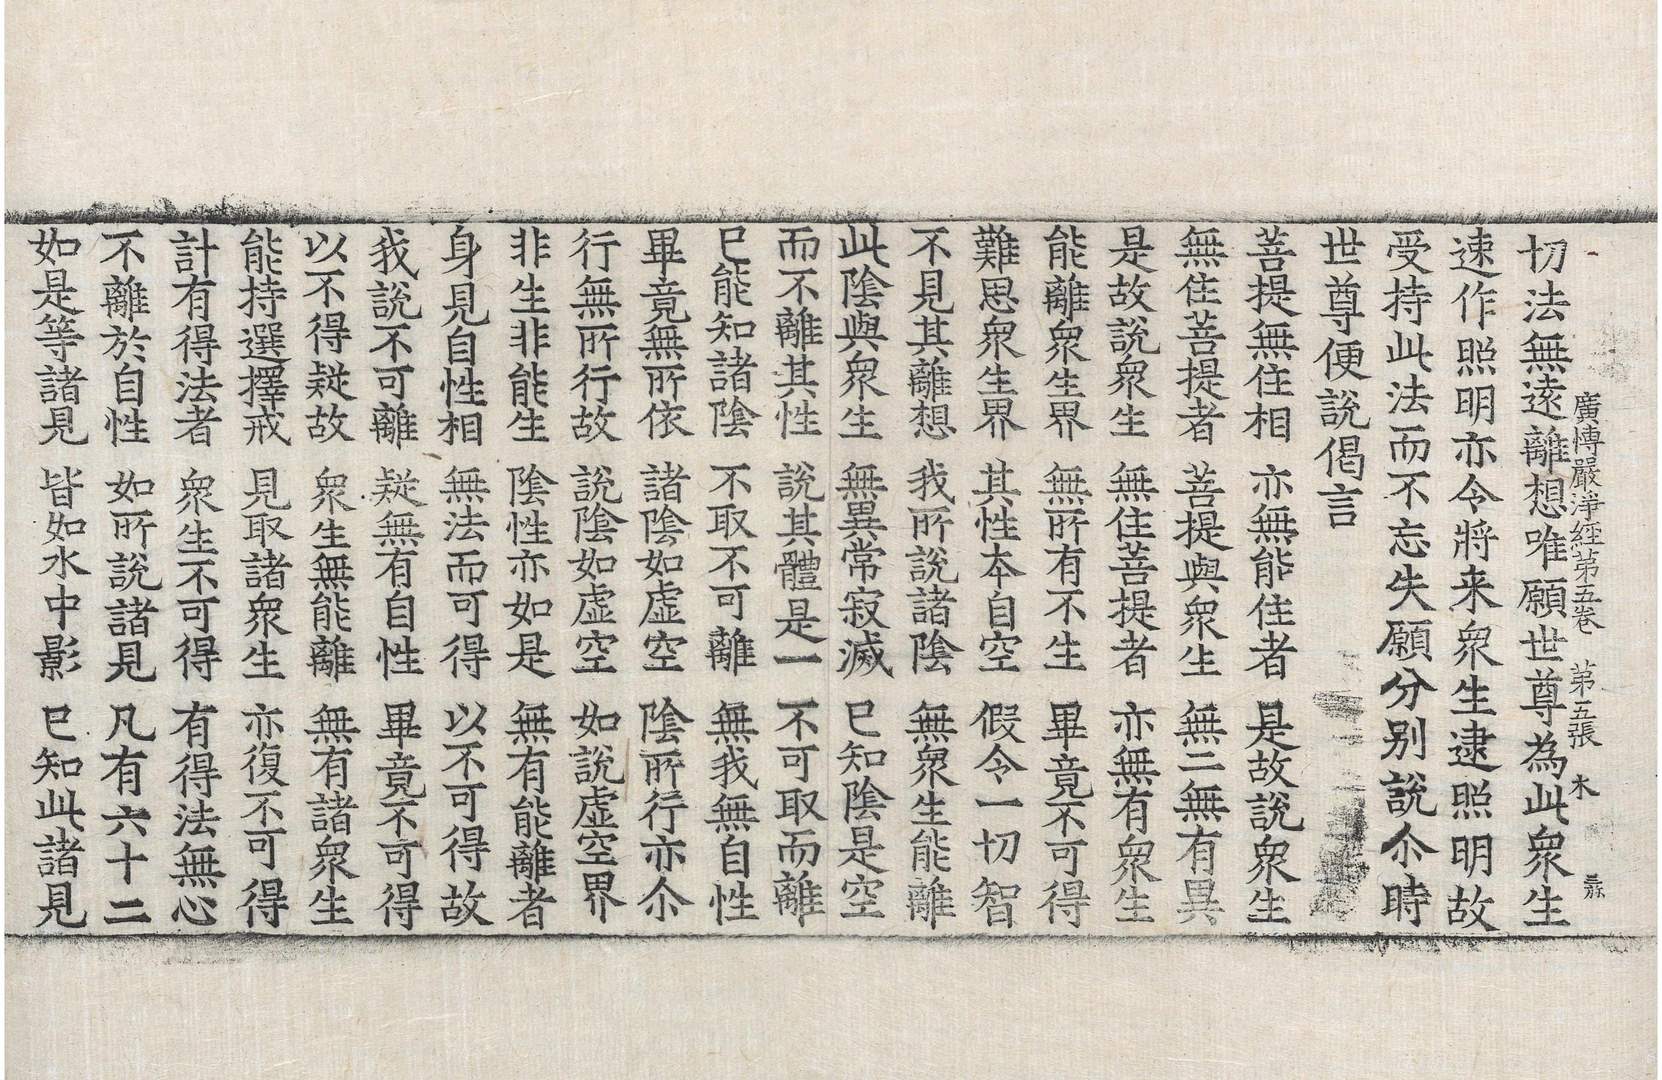 廣博嚴淨經第五卷　第五張　木
切法無遠離想唯願世尊為此衆生
速作照明亦令將来衆生逮照明故
受持此法而不忘失願分别說尒時
世尊便說偈言
菩提無住相　亦無能住者　是故說衆生
無住菩提者　菩提與衆生　無二無有異
是故說衆生　無住菩提者　亦無有衆生
能離衆生界　無所有不生　畢竟不可得
難思衆生界　其性本自空　假令一切智
不見其離想　我所說諸陰　無衆生能離
此陰與衆生　無異常寂滅　已知陰是空
而不離其性　說其體是一　不可取而離
已能知諸陰　不取不可離　無我無自性
畢竟無所依　諸陰如虛空　陰所行亦尒
行無所行故　說陰如虛空　如說虛空界
非生非能生　陰性亦如是　無有能離者
身見自性相　無法而可得　以不可得故
我說不可離　疑無有自性　畢竟不可得
以不得疑故　衆生無能離　無有諸衆生
能持選擇戒　見取諸衆生　亦復不可得
計有得法者　衆生不可得　有得法無心
不離於自性　如所說諸見　凡有六十二
如是等諸見　皆如水中影　已知此諸見